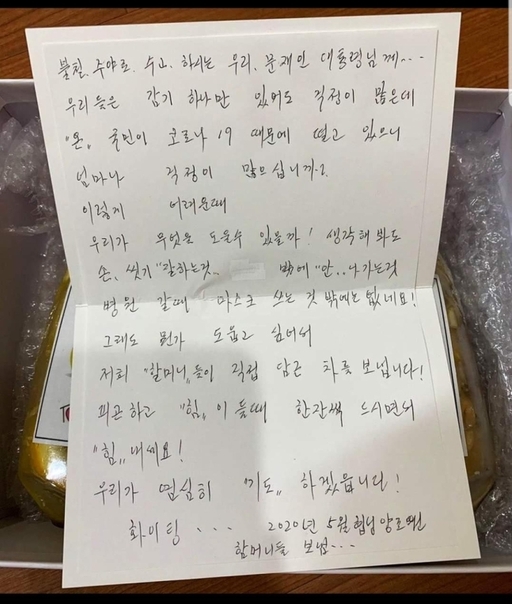 불철.주야로. 수고. 하시는 우리. 문재인 대통령님께...
우리들은 감기 하나만 있어도 걱정이 많은데
"온„ 국민이 코로나 19 때문에 떨고 있으니
넘마나 걱정이 많으십니까.?
이렇게 어려운때
우리가 무엇을 도울수 있을까! 생각해 봐도
손, 씻기"잘하는것.. 밖에"안..나가는것
병원 갈때 마스크 쓰는 것 밖에는 없네요!
그래도 뭔가 도웁고 싶어서
저희 "할머니„들이 직접 담근 차를 보냅니다!
피곤하고 "힘„이 들때 한잔씩 드시면서
"힘„내세요!
우리가 열심히 "기도„ 하겠읍니다!
화이팅 ... 2020년 5월
할머니들 보냄...